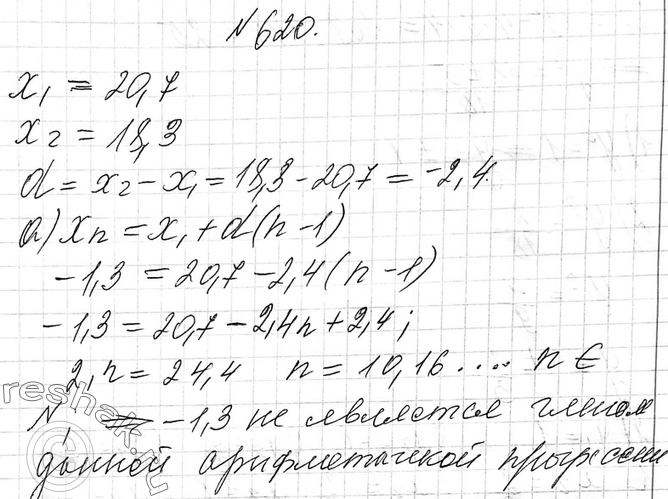 №620.
x₁ = 20,7
x₂ = 18,3
d = x₂ - x₁ = 18,3 - 20,7 = -2,4.
а) xₙ = x₁ + d(n - 1)
-1,3 = 20,7 - 2,4(n - 1)
-1,3 = 20,7 - 2,4n + 2,4;
2,n = 24,4 n = 10,16.... n ∈
N, -1,3 не является членом
данной арифметической прогрессии
reshak.ru